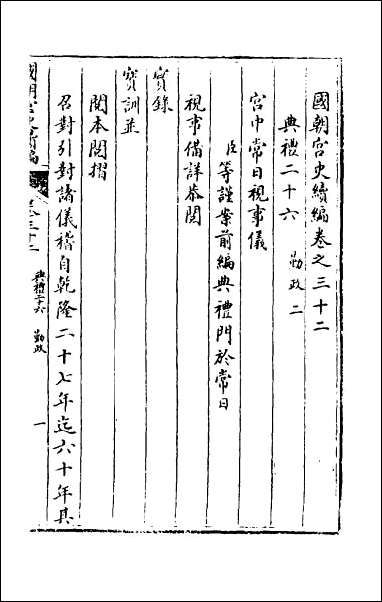 國朝宮史續編卷之三十二
典禮二十六 勤政二
宮中常日視事儀
臣等謹案前編典禮門於常日
視事備詳恭閱
實錄
寶訓並
閱本閱摺
召對引對諸儀稽自乾隆二十七年迄六十年具
國朝宮史續編 卷三十二 典禮二十六 勤政 一